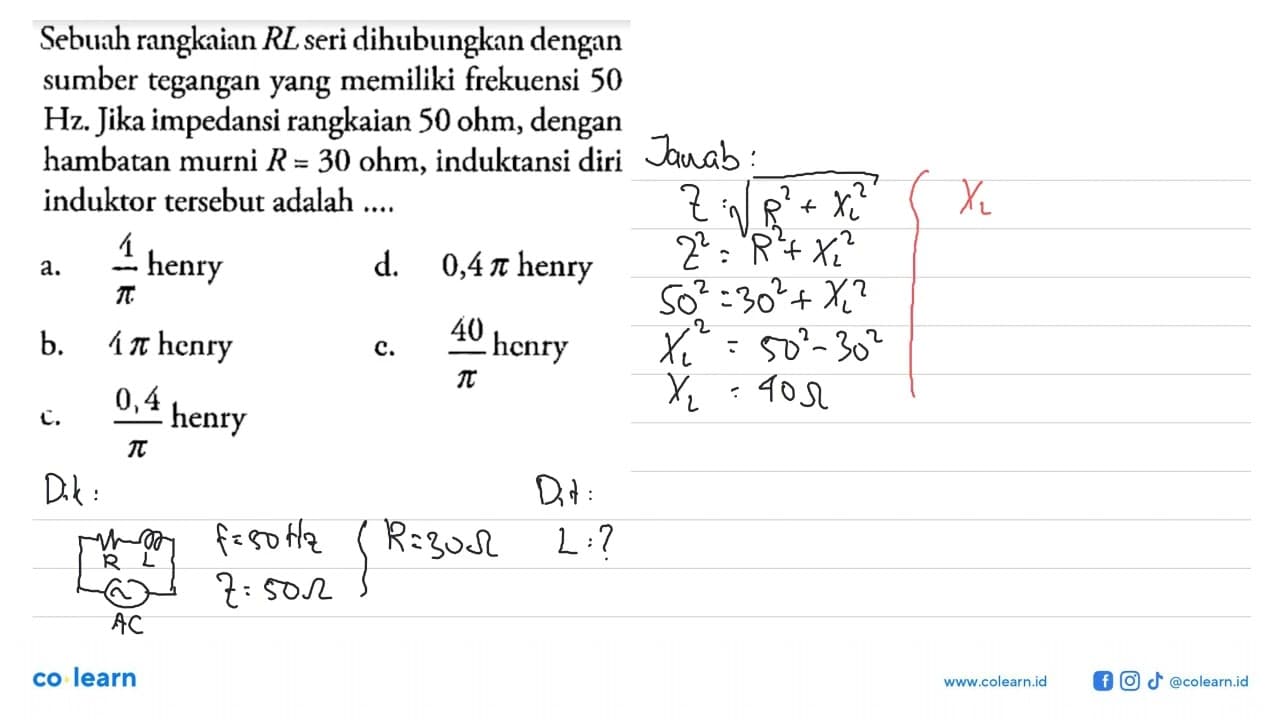 Sebuah rangkaian RL seri dihubungkan dengan
sumber tegangan yang memiliki frekuensi 50
Hz. Jika impedansi rangkaian 50 ohm, dengan
hambatan murni R = 30 ohm, induktansi diri
induktor tersebut adalah ....
a. 4/π henry
d. 0,4 π henry
b. 4 π henry
e. 40/π henry
c. 0,4/π henry
Jawab :
Z = √(R² + X_L²)
Z² = R² + X_L²
50² = 30² + X_L²
X_L² = 50² - 30²
X_L = 40 Ω
X_L
Dik :
R L
AC
f = 50 Hz
Z = 50 Ω
R = 30 Ω
Dit :
L : ?
co learn
www.colearn.id
@colearn.id